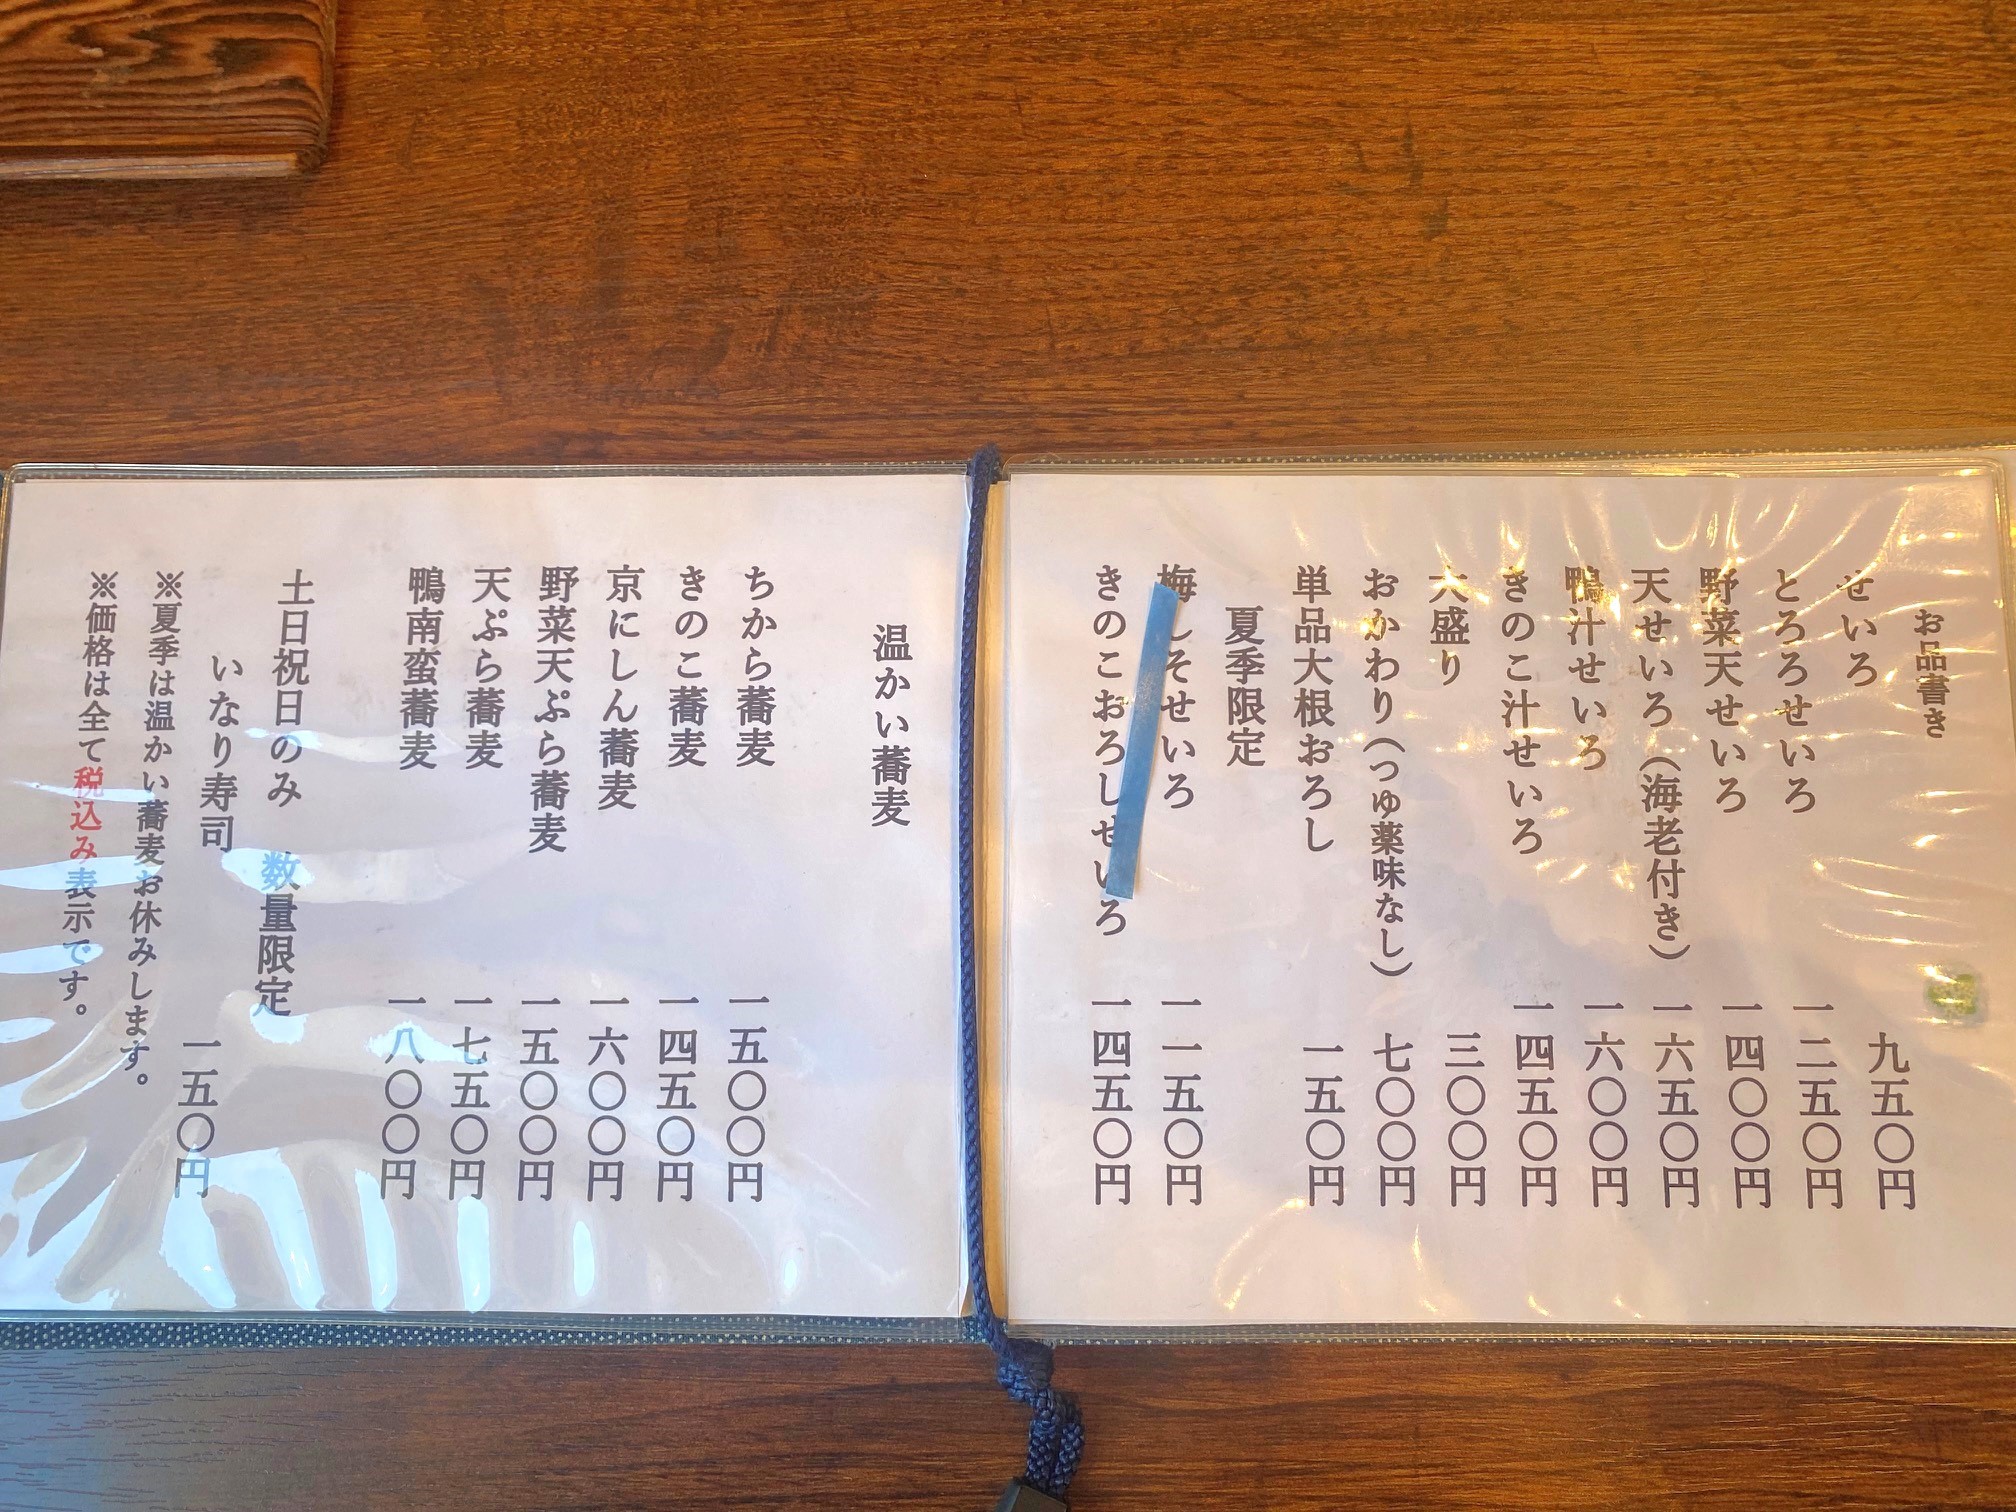 お品書き
せいろ 九五〇円
とろろせいろ 一二五〇円
野菜天せいろ 一四〇〇円
天せいろ(海老付き) 一六五〇円
鴨汁せいろ 一六〇〇円
きのこ汁せいろ 一四五〇円
大盛り 三〇〇円
おかわり(つゆ薬味なし) 七〇〇円
単品大根おろし 一五〇円
夏季限定
梅しそせいろ 一一五〇円
きのこおろしせいろ 一四五〇円
温かい蕎麦
ちから蕎麦 一五〇〇円
きのこ蕎麦 一四五〇円
京にしん蕎麦 一六〇〇円
野菜天ぷら蕎麦 一五〇〇円
天ぷら蕎麦 一七五〇円
鴨南蛮蕎麦 一八〇〇円
土日祝日のみ 数量限定
いなり寿司 一五〇円
※夏季は温かい蕎麦お休みします。
※価格は全て税込み表示です。